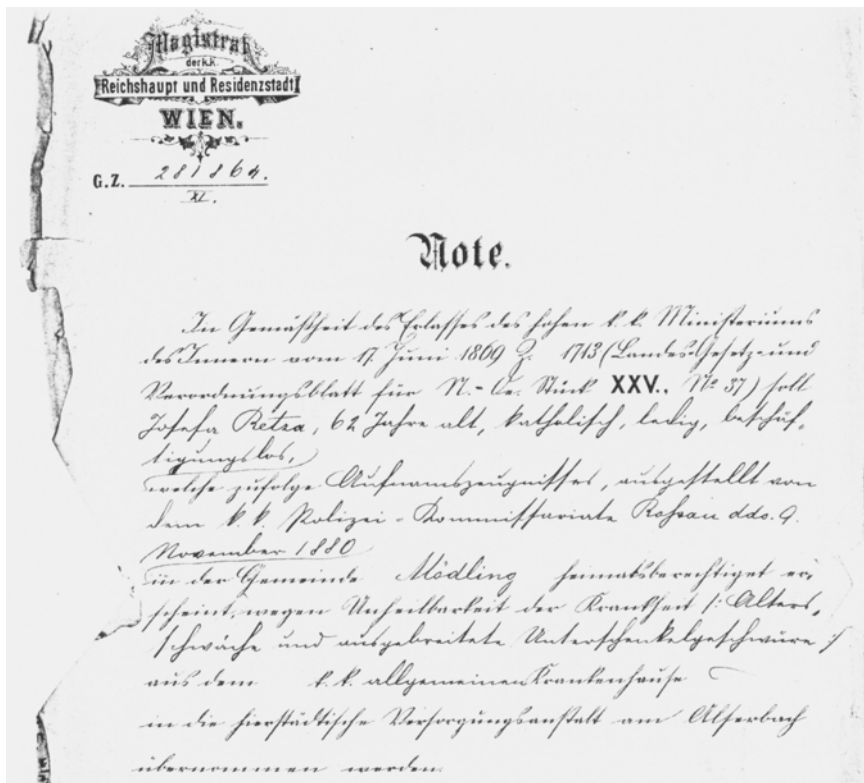 Magistrat
der k.k.
Reichshaupt und Residenzstadt
WIEN.
G.Z. 281864.
XI.
Note.
In Gemäßheit des Erlasses des hohen k. k. Ministeriums
des Innern vom 17. Juni 1869 Z. 1713 (Landes-Gesetz- und
Verordnungsblatt für N.-Oe. Stück XXV., No 37) soll
Josefa Retza, 62 Jahre alt, katholisch, ledig, beschäf-
tigungslos,
welche zufolge Aufnamszeugnisses, ausgestellt von
dem k. k. Polizei-Kommissariate Roßau ddo. 9.
November 1880
in der Gemeinde Mödling heimatsberechtiget er-
scheint, wegen Unheilbarkeit der Krankheit /: Alters-
schwäche und ausgebreitete Unterschenkelgeschwüre :/
aus dem k. k. allgemeinen Krankenhause
in die hierstädtische Versorgungsanstalt am Alserbach
übernommen werden.